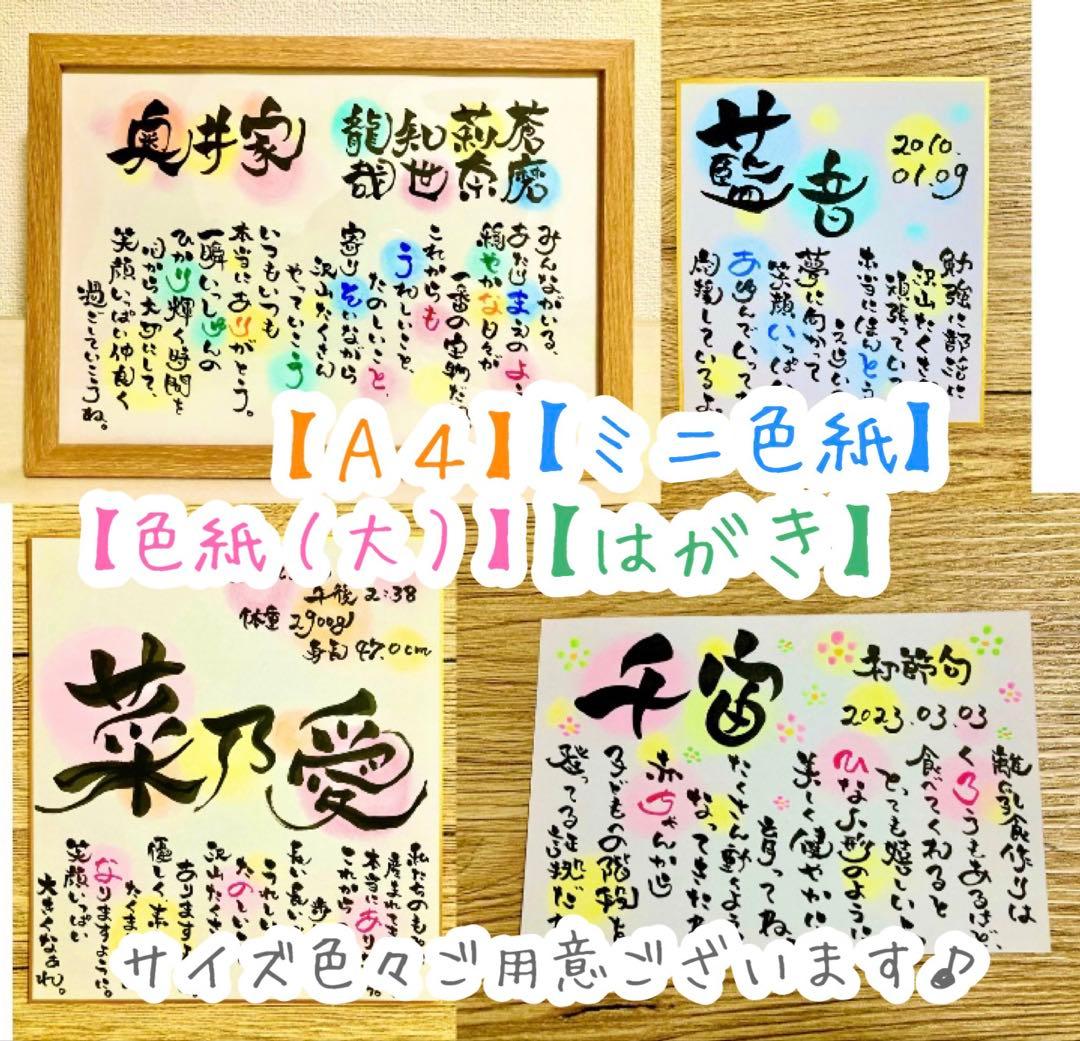 奥井家
蒼磨
莉奈
知世
龍哉
みんながいる、
あたりまえのよう
穏やかな日々が
一番の宝物だ
これからも
うれしいこと、
たのしいこと、
沢山たくさん
寄りそいながら
やっていこう
いつもいつも
本当にありがとう。
一瞬いっしゅんの
ひかり輝く時間を
心から大切にして、
笑顔いっぱい仲良く
過ごしていこうね。
藍音
2010.
01.09
勉強に部活に
沢山たくさん
頑張っている
本当にほんと
夢に向かって
笑顔いっぱい
あゆんでいって
応援しているよ。
【A4】【ミニ色紙】
【色紙(大)】【はがき】
午後 2:38
体重 2900g
身長 47.0cm
菜乃愛
私たちのも
産まれて
本当にあり
これから
歩
長い長い
うれしい
たのしい
沢山たくさ
ありますよ
優しく
たくま
なりますように。
笑顔いっぱい
大きくなぁれ。
千宙
初節句
2023.03.03
離乳食作りは
くろうもあるけど、
食べてくれると
とっても嬉しい
ひな人形のように
美しく健やかに
育ってね
たくさん動くよう
なってきたね
赤ちゃんから
子どもの階段を
登ってる証拠だね
サイズ色々ご用意ございます♪